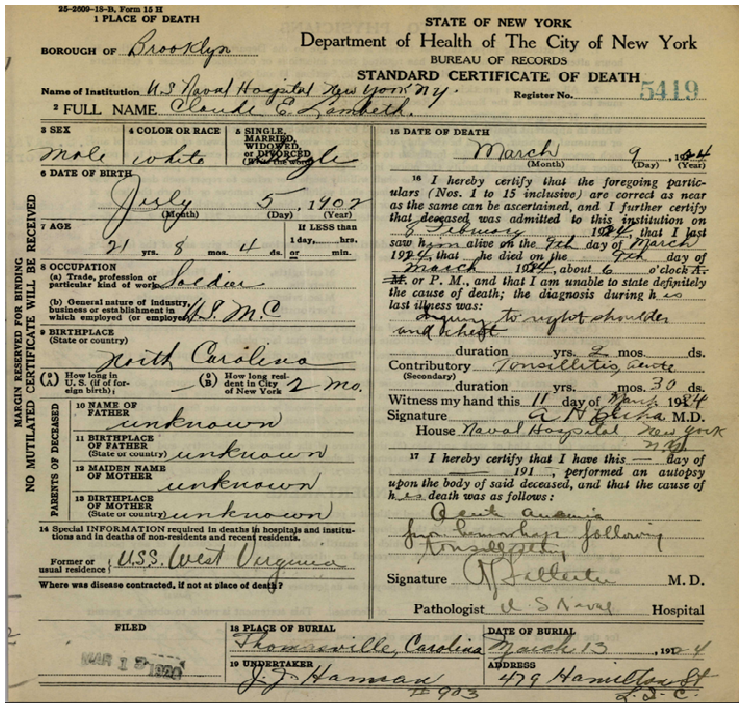 25-2609-18-B, Form 15 H
1 PLACE OF DEATH
STATE OF NEW YORK
BOROUGH OF Brooklyn
Department of Health of The City of New York
BUREAU OF RECORDS
STANDARD CERTIFICATE OF DEATH
Name of Institution U.S Naval Hospital New York NY.
Register No. 5419
2 FULL NAME Claude E. Lambeth.
3 SEX
male
4 COLOR OR RACE
white
5 SINGLE,
MARRIED,
WIDOWED,
or DIVORCED
(Write the word)
6 DATE OF BIRTH
July 5, 1902
(Month) (Day) (Year)
7 AGE
21 yrs. 8 mos. 4 ds.
If LESS than
1 day, hrs.
or min.
8 OCCUPATION
(a) Trade, profession or
particular kind of work Soldier
(b) General nature of industry,
business or establishment in
which employed (or employer) U.S. M.C
9 BIRTHPLACE
(State or country)
North Carolina
(A) How long in
U. S. (if of for-
eign birth)
(B) How long resi-
dent in City
of New York 2 mo.
PARENTS OF DECEASED
10 NAME OF
FATHER
unknown
11 BIRTHPLACE
OF FATHER
(State or country) unknown
12 MAIDEN NAME
OF MOTHER
unknown
13 BIRTHPLACE
OF MOTHER
(State or country) unknown
14 Special INFORMATION required in deaths in hospitals and institu-
tions and in deaths of non-residents and recent residents.
Former or
usual residence USS. West Virginia
Where was disease contracted, if not at place of death?
15 DATE OF DEATH
March 9, 1924
(Month) (Day) (Year)
16 I hereby certify that the foregoing partic-
ulars (Nos. 1 to 15 inclusive) are correct as near
as the same can be ascertained, and I further certify
that deceased was admitted to this institution on
8 February 1924, that I last
saw him alive on the 9th day of March
1924, that he died on the 9th day of
March 1924, about 6 o'clock A.
M. or P. M., and that I am unable to state definitely
the cause of death; the diagnosis during his
last illness was:
Injury to right shoulder
and chest
duration yrs. 2 mos. ds.
Contributory Tonsillitis, acute
(Secondary)
duration yrs. mos. 30 ds.
Witness my hand this 11 day of March 1924
Signature M.D.
House Naval Hospital, New York
N.Y.
17 I hereby certify that I have this — day of
— 191 , performed an autopsy
upon the body of said deceased, and that the cause of
his death was as follows:
Acute anemia
from hemorrhage following
tonsillectomy
Signature M.D.
Pathologist U S Naval Hospital
FILED
MAR 1
18 PLACE OF BURIAL
Thomasville, Carolina
DATE OF BURIAL
March 13, 1924
19 UNDERTAKER
J. J. Hannan
# 903
ADDRESS
479 Hamilton St
L. I. C.
MARGIN RESERVED FOR BINDING
NO MUTILATED CERTIFICATE WILL BE RECEIVED